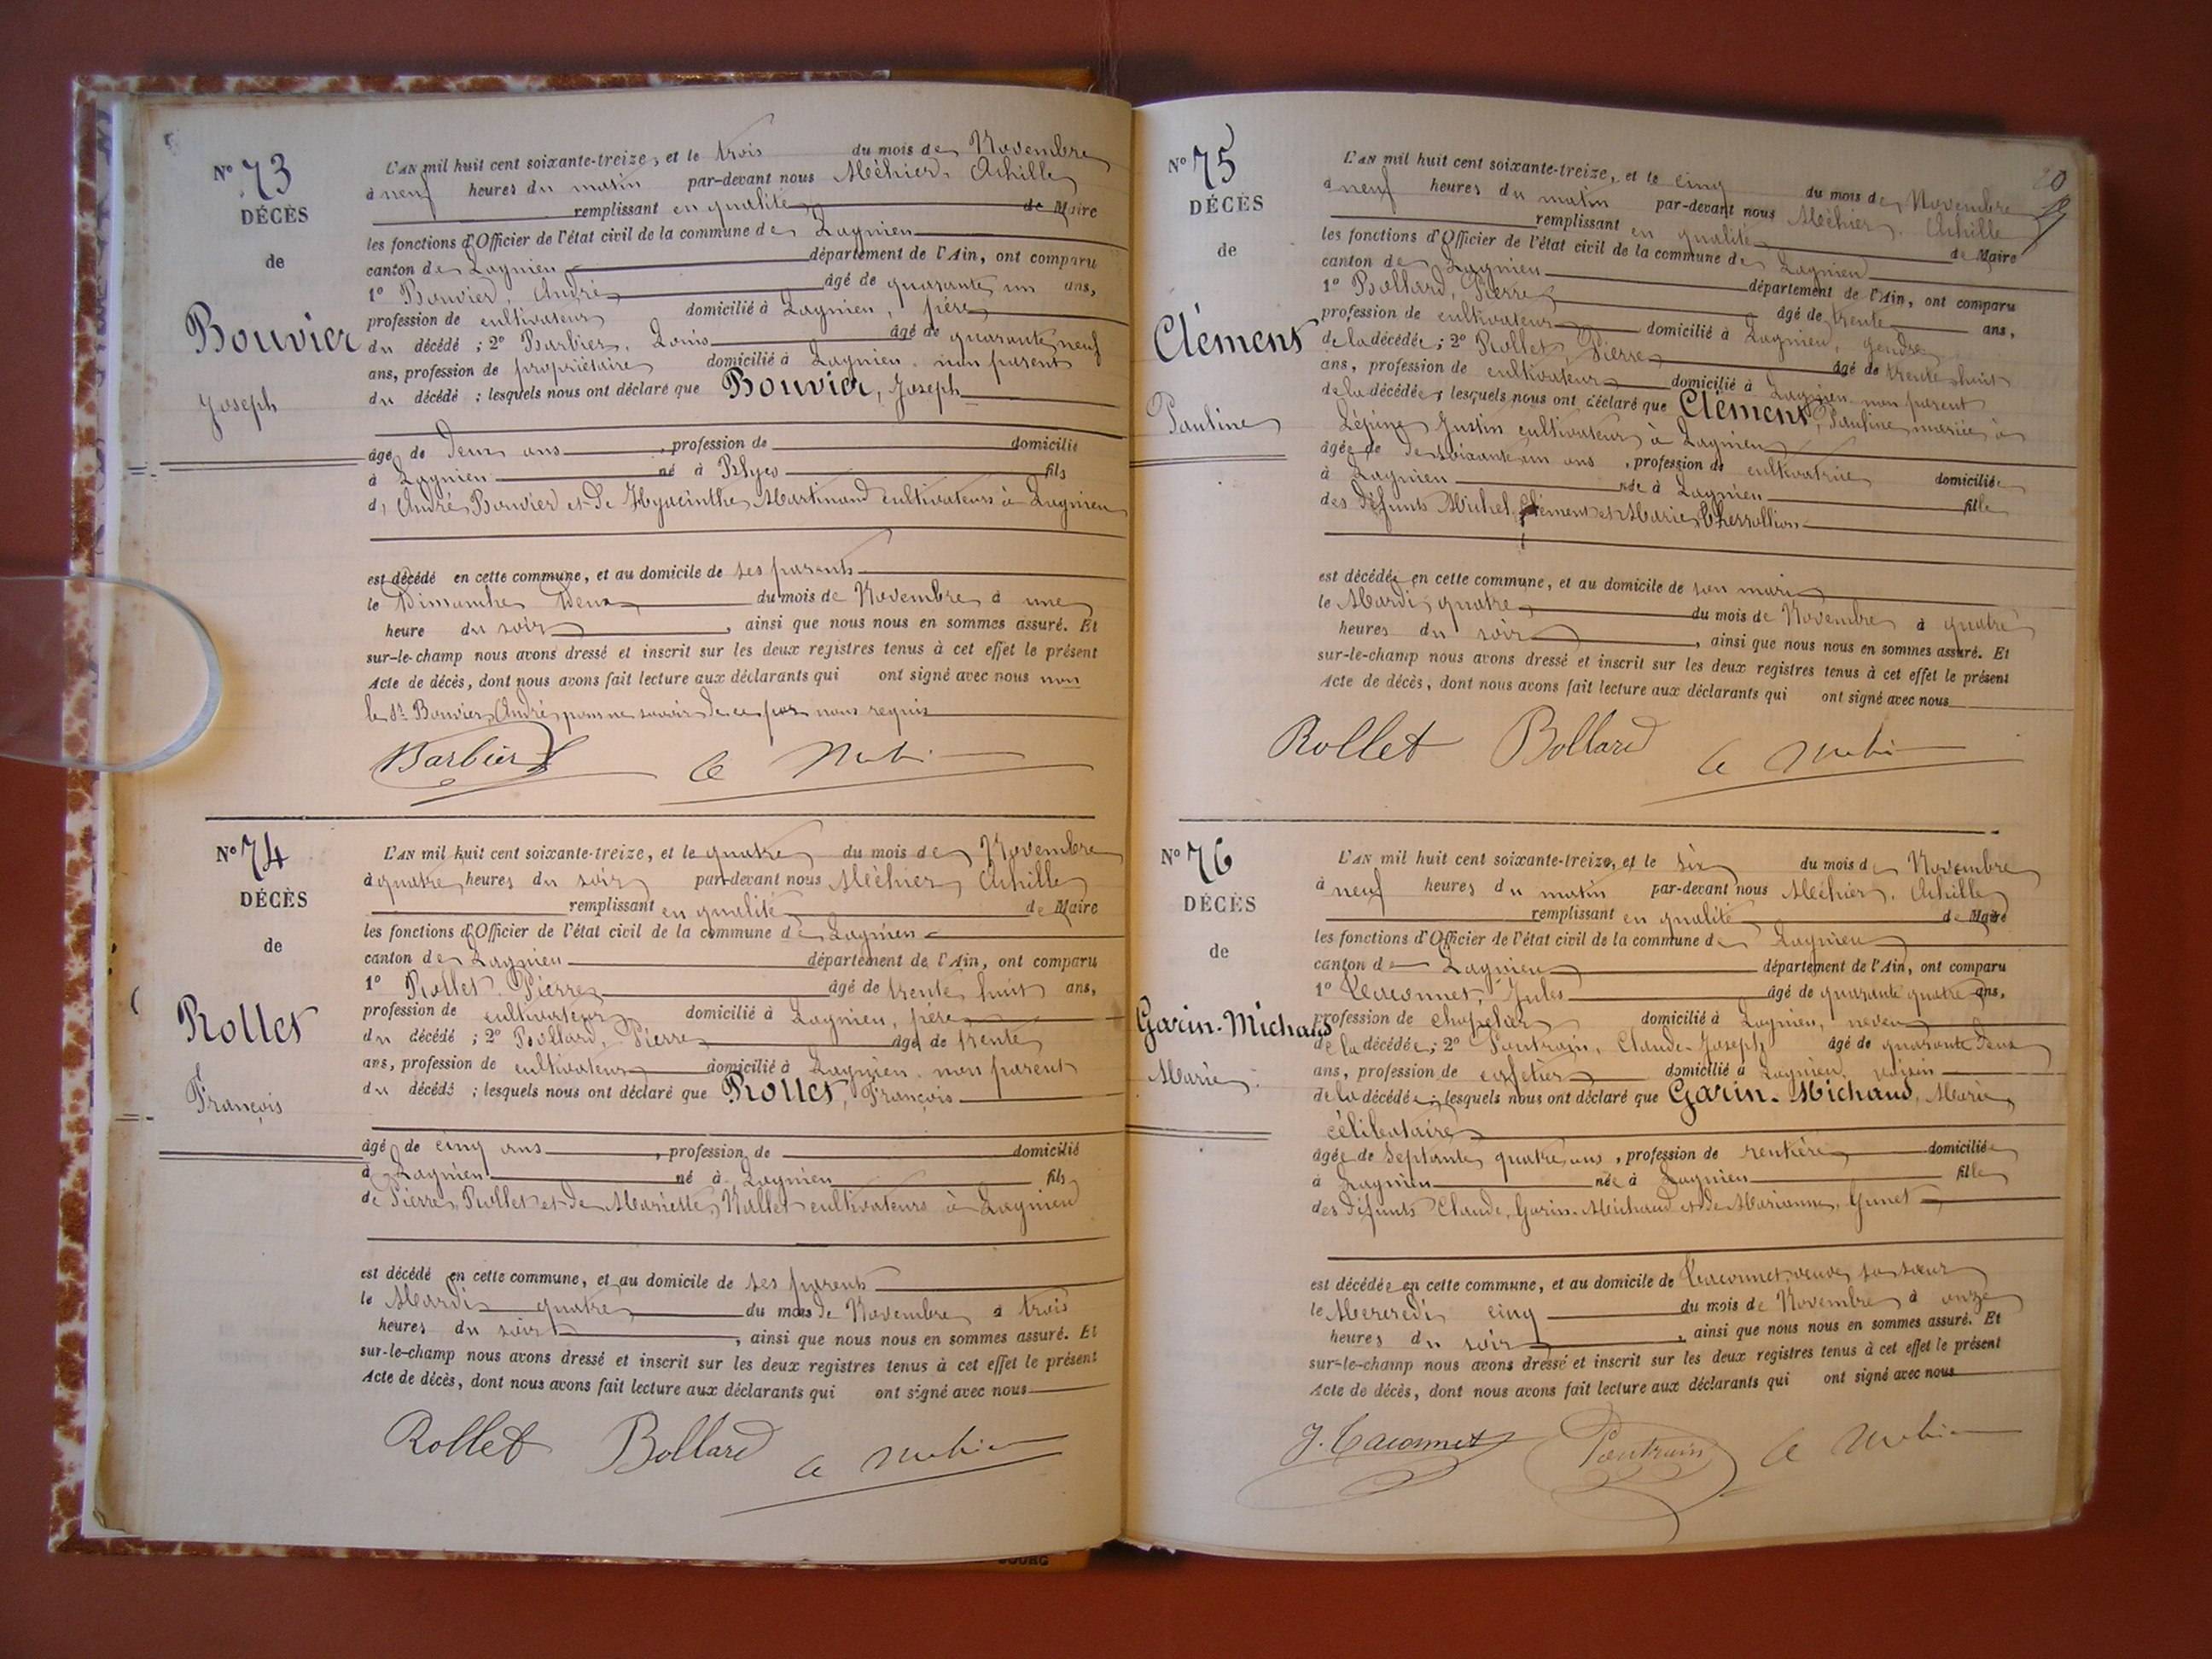 N° 73
DÉCÈS
de
Bouvier
Joseph
L'AN mil huit cent soixante-treize, et le trois du mois de Novembre
à neuf heures du matin par-devant nous Méhier, Achille
remplissant en qualité de Maire
les fonctions d'Officier de l'état civil de la commune de Lagnieu
canton de Lagnieu département de l'Ain, ont comparu
1° Bouvier, André âgé de quarante un ans,
profession de cultivateur domicilié à Lagnieu, père
du décédé ; 2° Barbier, Louis âgé de quarante neuf
ans, profession de propriétaire domicilié à Lagnieu, non parent
du décédé ; lesquels nous ont déclaré que Bouvier, Joseph
âgé de deux ans, profession de domicilié
à Lagnieu né à fils
de André Bouvier et de Hyacinthe Martinand cultivateurs à Lagnieu
est décédé en cette commune, et au domicile de ses parents
le Dimanche deux du mois de Novembre à une
heure du soir, ainsi que nous nous en sommes assuré. Et
sur-le-champ nous avons dressé et inscrit sur les deux registres tenus à cet effet le présent
Acte de décès, dont nous avons fait lecture aux déclarants qui ont signé avec nous non
le Sr Bouvier, André pour ne savoir de ce par nous requis
Barbier A Méhier
N° 74
DÉCÈS
de
Rollet
François
L'AN mil huit cent soixante-treize, et le quatre du mois de Novembre
à quatre heures du soir par-devant nous Méhier, Achille
remplissant en qualité de Maire
les fonctions d'Officier de l'état civil de la commune de Lagnieu
canton de Lagnieu département de l'Ain, ont comparu
1° Rollet, Pierre âgé de trente huit ans,
profession de cultivateur domicilié à Lagnieu, père
du décédé ; 2° Bollard, Pierre âgé de trente
ans, profession de cultivateur domicilié à Lagnieu, non parent
du décédé ; lesquels nous ont déclaré que Rollet, François
âgé de cinq ans, profession de domicilié
à Lagnieu né à Lagnieu fils
de Pierre Rollet et de Mariette Nallet cultivateurs à Lagnieu
est décédé en cette commune, et au domicile de ses parents
le Mardi quatre du mois de Novembre à trois
heures du soir, ainsi que nous nous en sommes assuré. Et
sur-le-champ nous avons dressé et inscrit sur les deux registres tenus à cet effet le présent
Acte de décès, dont nous avons fait lecture aux déclarants qui ont signé avec nous
Rollet Bollard A Méhier
20
N° 75
DÉCÈS
de
Clément
Pauline
L'AN mil huit cent soixante-treize, et le cinq du mois de Novembre
à neuf heures du matin par-devant nous Méhier, Achille
remplissant en qualité de Maire
les fonctions d'Officier de l'état civil de la commune de Lagnieu
canton de Lagnieu département de l'Ain, ont comparu
1° Bollard, Pierre âgé de trente ans,
profession de cultivateur domicilié à Lagnieu, gendre
de la décédée ; 2° Rollet, Pierre âgé de trente huit
ans, profession de cultivateur domicilié à Lagnieu non parent
de la décédée ; lesquels nous ont déclaré que Clément, Pauline mariée à
Lépine Justin cultivateur à Lagnieu
âgée de soixante un ans, profession de cultivatrice domiciliée
à Lagnieu née à Lagnieu fille
des défunts Michel Clément et Marie
est décédée en cette commune, et au domicile de son mari
le Mardi quatre du mois de Novembre à quatre
heures du soir, ainsi que nous nous en sommes assuré. Et
sur-le-champ nous avons dressé et inscrit sur les deux registres tenus à cet effet le présent
Acte de décès, dont nous avons fait lecture aux déclarants qui ont signé avec nous
Rollet Bollard A Méhier
N° 76
DÉCÈS
de
Garin-Michaud
Marie
L'AN mil huit cent soixante-treize, et le six du mois de Novembre
à neuf heures du matin par-devant nous Méhier, Achille
remplissant en qualité de Maire
les fonctions d'Officier de l'état civil de la commune de Lagnieu
canton de Lagnieu département de l'Ain, ont comparu
1° Taconnet, Jules âgé de quarante quatre ans,
profession de chapelier domicilié à Lagnieu, neveu
de la décédée ; 2° Pontrain, Claude-Joseph âgé de quarante deux
ans, profession de cafetier domicilié à Lagnieu, voisin
de la décédée ; lesquels nous ont déclaré que Garin-Michaud, Marie
célibataire
âgée de septante quatre ans, profession de rentière domiciliée
à Lagnieu née à Lagnieu fille
des défunts Claude Garin-Michaud et de Marianne Genet
est décédée en cette commune, et au domicile de Taconnet veuve sa sœur
le Mercredi cinq du mois de Novembre à onze
heures du soir, ainsi que nous nous en sommes assuré. Et
sur-le-champ nous avons dressé et inscrit sur les deux registres tenus à cet effet le présent
Acte de décès, dont nous avons fait lecture aux déclarants qui ont signé avec nous
J. Taconnet Pontrain A Méhier
BOURG